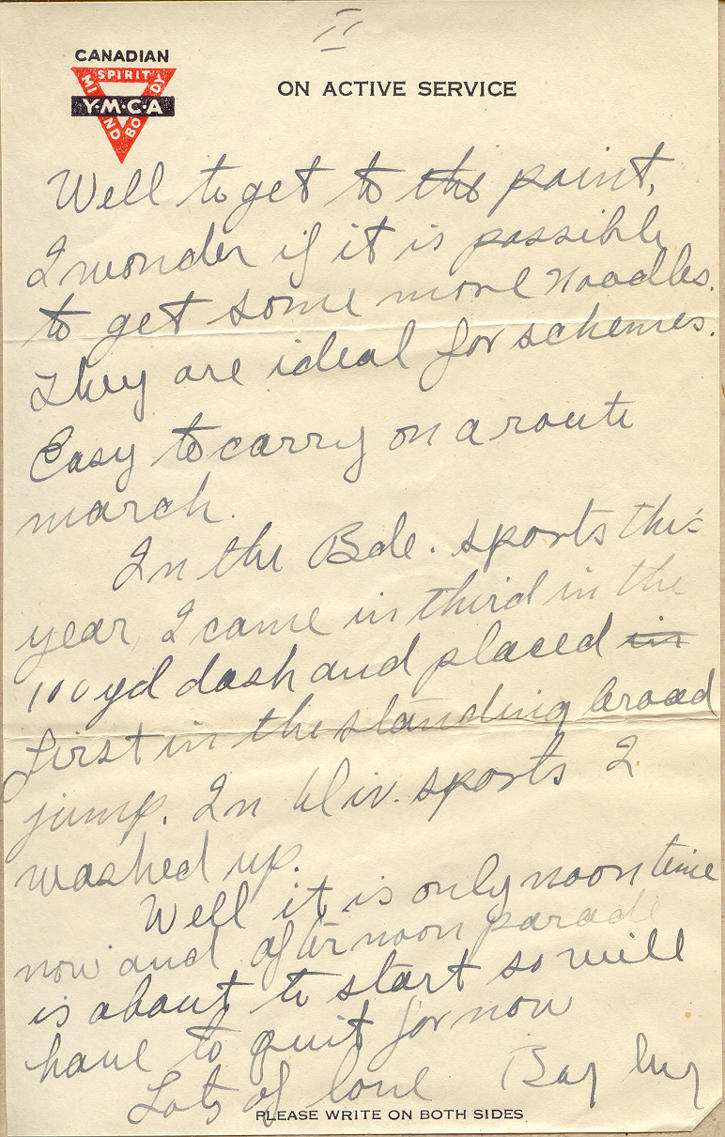 II
CANADIAN
SPIRIT
MIND
BODY
Y·M·C·A
ON ACTIVE SERVICE
Well to get to the point,
I wonder if it is possible
to get some more noodles.
They are ideal for schemes.
Easy to carry on a route
march.
In the Bde. sports this
year, I came in third in the
100 yd dash and placed in
first in the standing broad
jump. In Div. sports I
washed up.
Well it is only noon time
now and afternoon parade
is about to start so will
have to quit for now
Lots of love
PLEASE WRITE ON BOTH SIDES